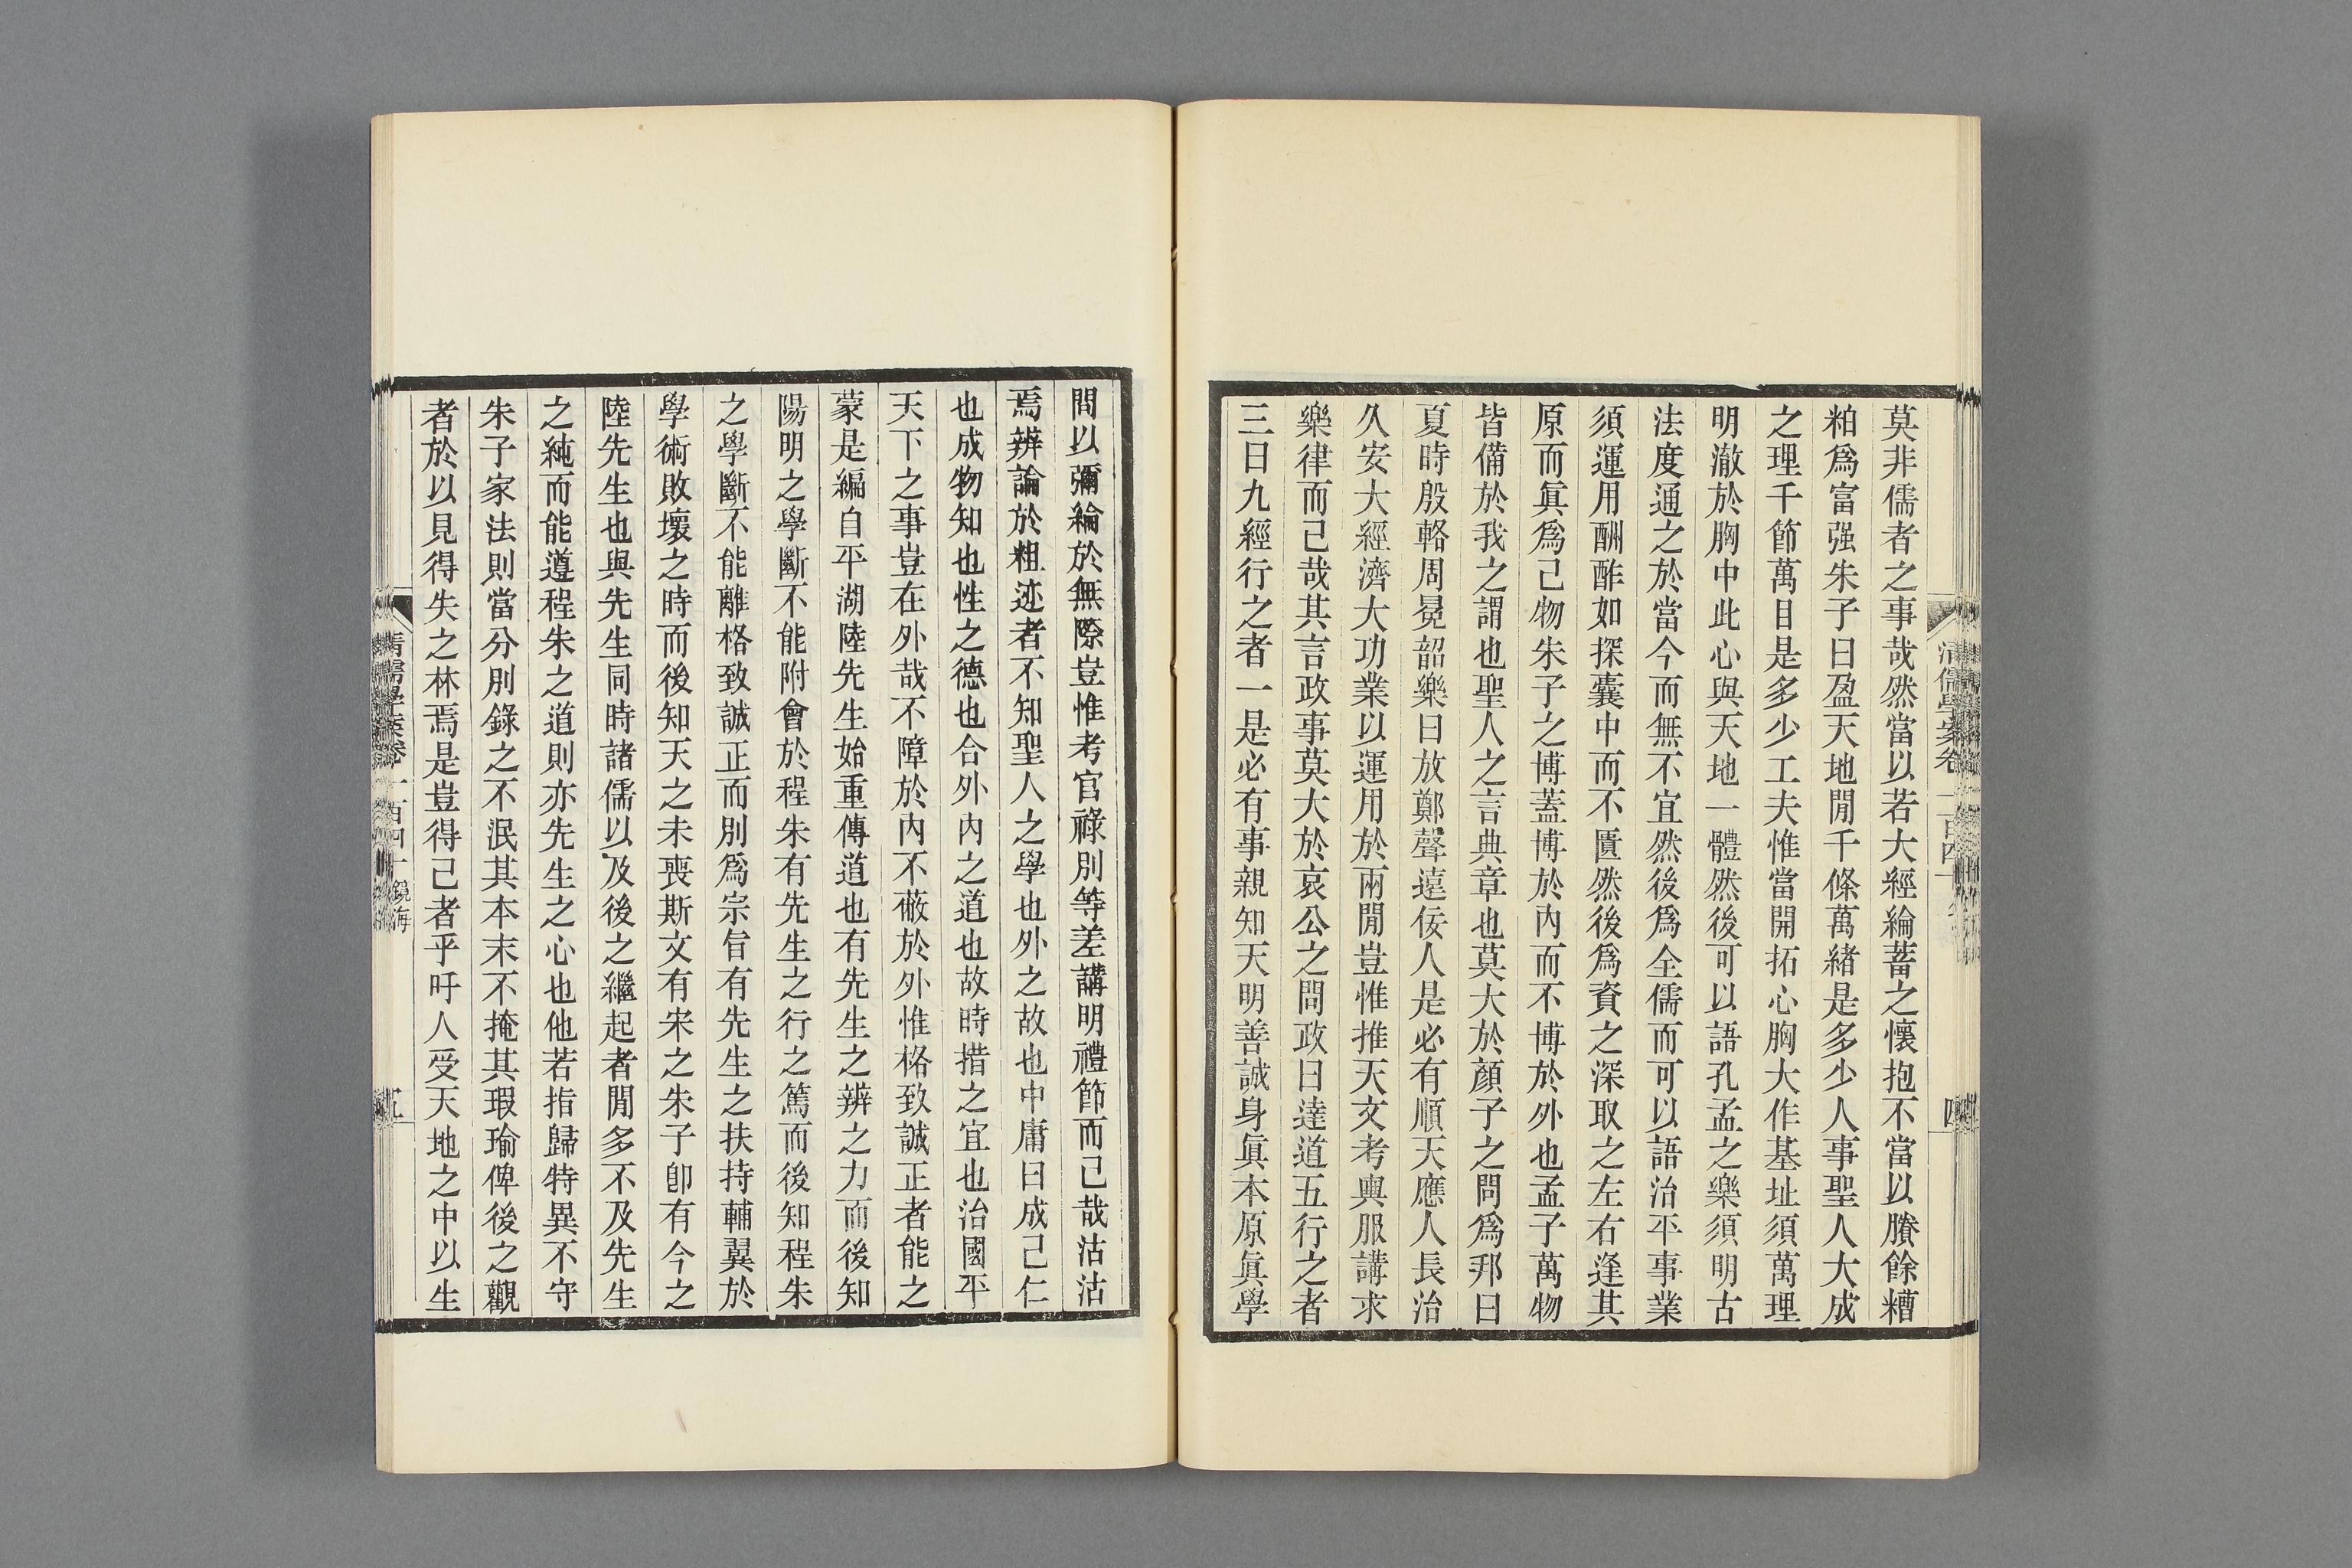 莫非儒者之事哉然當以若大經綸蓄之懷抱不當以賸餘糟
粕爲富强朱子曰盈天地閒千條萬緒是多少人事聖人大成
之理千節萬目是多少工夫惟當開拓心胸大作基址須萬理
明澈於胸中此心與天地一體然後可以語孔孟之樂須明古
法度通之於當今而無不宜然後爲全儒而可以語治平事業
須運用酬酢如探囊中而不匱然後爲資之深取之左右逢其
原而眞爲己物朱子之博蓋博於內而不博於外也孟子萬物
皆備於我之謂也聖人之言典章也莫大於顏子之問爲邦曰
夏時殷輅周冕韶樂曰放鄭聲遠佞人是必有順天應人長治
久安大經濟大功業以運用於兩閒豈惟推天文考輿服講求
樂律而已哉其言政事莫大於哀公之問政曰達道五行之者
三曰九經行之者一是必有事親知天明善誠身眞本原眞學
問以彌綸於無際豈惟考官祿別等差講明禮節而已哉沾沾
焉辨論於粗迹者不知聖人之學也外之故也中庸曰成己仁
也成物知也性之德也合外內之道也故時措之宜也治國平
天下之事豈在外哉不障於內不蔽於外惟格致誠正者能之
蒙是編自平湖陸先生始重傳道也有先生之辨之力而後知
陽明之學斷不能附會於程朱有先生之行之篤而後知程朱
之學斷不能離格致誠正而別爲宗旨有先生之扶持輔翼於
學術敗壞之時而後知天之未喪斯文有宋之朱子卽有今之
陸先生也與先生同時諸儒以及後之繼起者閒多不及先生
之純而能遵程朱之道則亦先生之心也他若指歸特異不守
朱子家法則當分別錄之不泯其本末不掩其瑕瑜俾後之觀
者於以見得失之林焉是豈得已者乎吁人受天地之中以生
清儒學案卷一百四十 鏡海
五